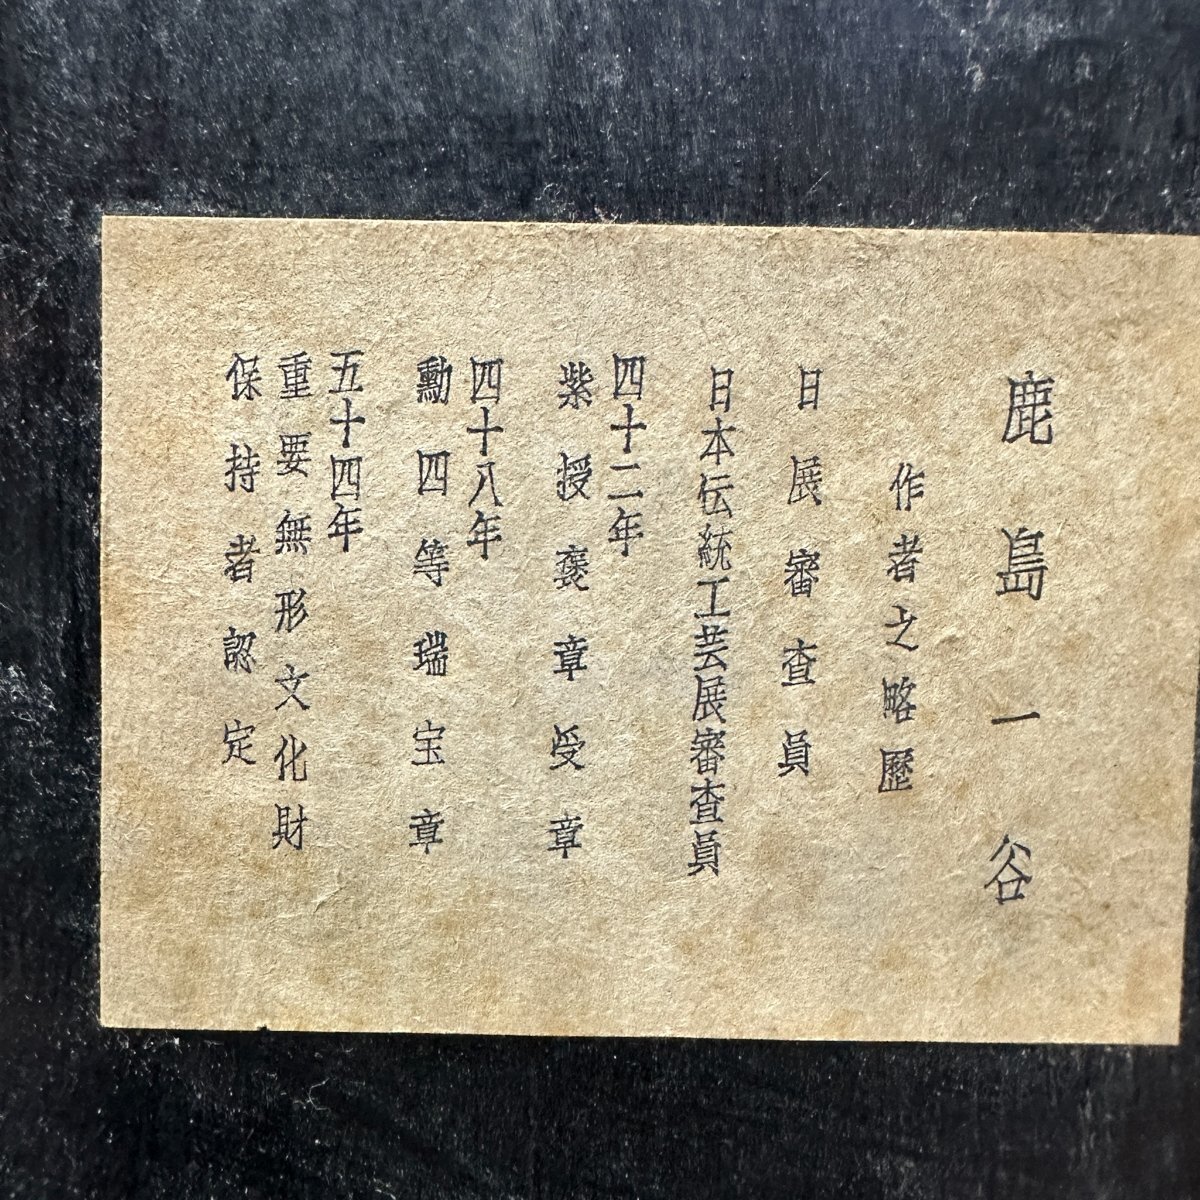 鹿島一谷
作者之略歴
日展審査員
日本伝統工芸展審査員
四十二年
紫授褒章受章
四十八年
勳四等瑞宝章
五十四年
重要無形文化財
保持者認定